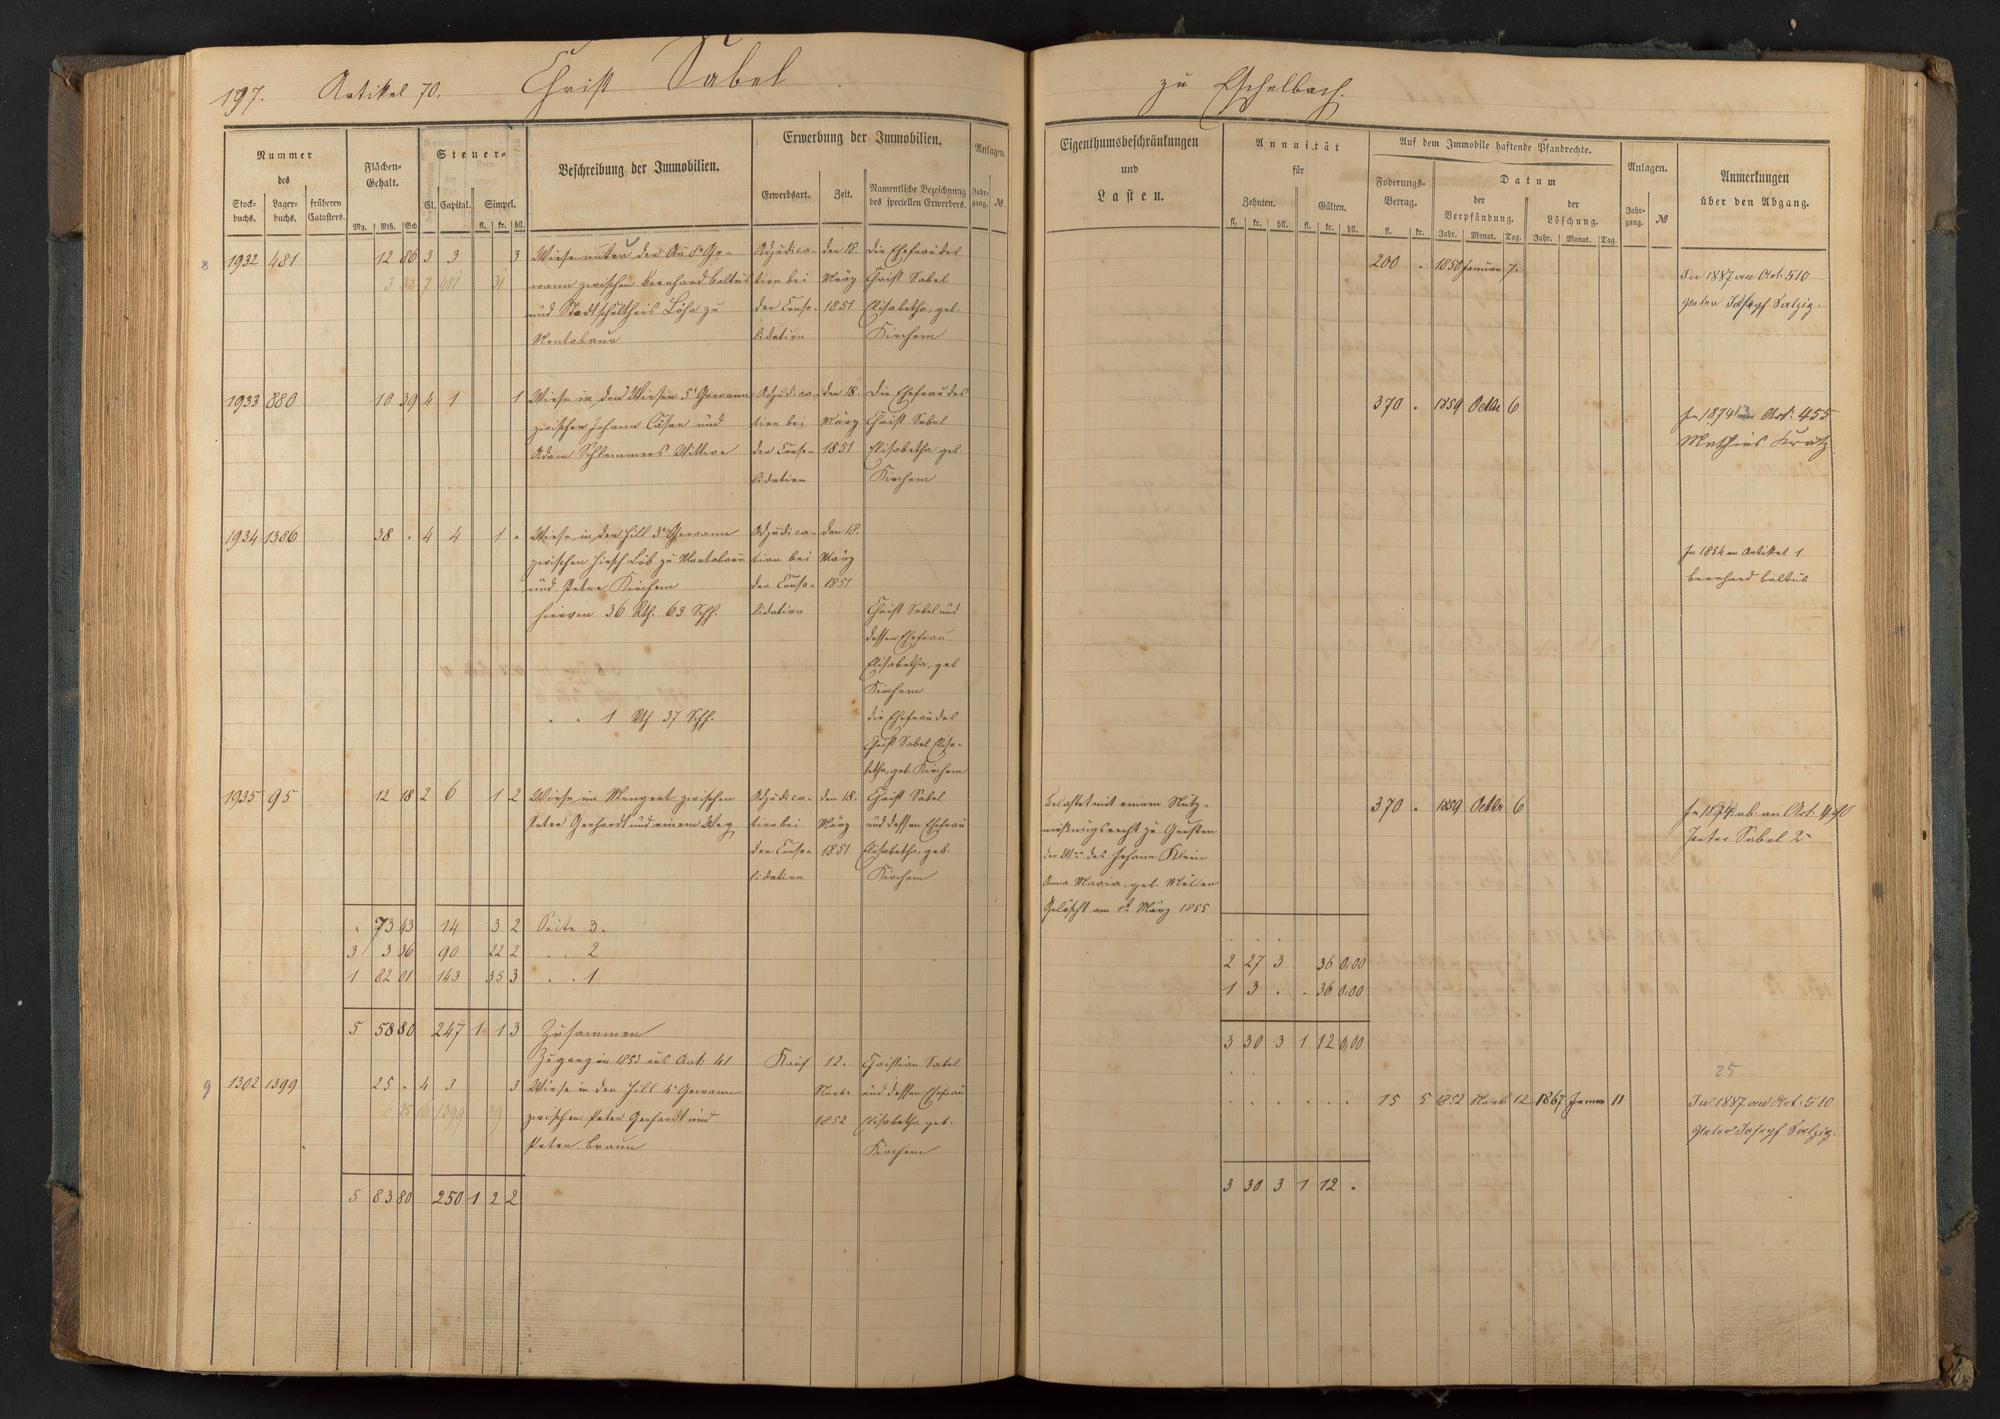 197. Artikel 70. Christ Sabel
zu Eschelbach.
Nummer des
Stockbuchs. Lagerbuchs. früheren Catasters.
Flächen-Gehalt.
Mg. Rth. Sch
Steuer-
Cl. Capital. Simpel.
fl. kr. hll.
Beschreibung der Immobilien.
Erwerbung der Immobilien.
Erwerbsart. Zeit. Namentliche Bezeichnung des speciellen Erwerbers.
Anlagen.
Jahrgang. №
Eigenthumsbeschränkungen und Lasten.
Annuität für
Zehnten. Gülten.
fl. kr. hll. fl. kr. hll.
Auf dem Immobile haftende Pfandrechte.
Foderungs-Betrag.
fl. kr.
Datum
der Verpfändung. der Löschung.
Jahr. Monat. Tag. Jahr. Monat. Tag.
Anlagen.
Jahrgang. №
Anmerkungen über den Abgang.
8 1932 481 12 86 3 3 3 Wiese unter der Au 8e Ge- Adjudica- den 18. die Ehefrau des
wann zwischen Bernhard Baltus tion bei März Christ Sabel
und Stadtschultheis Löhr zu der Conso- 1851 Elisabetha, geb.
Montabaur lidation Kirchem
200 „ 1850 Januar 7.
In 1887 an Art. 510
Peter Joseph Salzig.
1933 880 10 39 4 1 1 Wiese in den Wiesen 5e Gewann Adjudica- den 18. die Ehefrau des
zwischen Johann Cäsar und tion bei März Christ Sabel
Adam Schlemmers Wittwe der Conso- 1851 Elisabetha geb.
lidation Kirchem
370 „ 1859 Octbr 6
In 1874 an Art. 455
Mathias Kratz
1934 1386 38 . 4 4 1 „ Wiese in der Hill 3e Gewann Adjudica- den 18.
zwischen Hirsch Löb zu Montabaur tion bei März
und Peter Kirchem der Conso- 1851
hiervon 36 Rth. 63 Sch. lidation Christ Sabel und
dessen Ehefrau
Elisabetha, geb
Kirchem
„ „ 1 Rth 37 Sch. die Ehefrau des
Christ Sabel Elisa-
betha, geb. Kirchem
In 1854 an Artikel 1
Bernhard Baltus
1935 95 12 18 2 6 1 2 Wiese im Mengert zwischen Adjudica- den 18. Christ Sabel
Peter Gerhardt und einem Weg tion bei März und dessen Ehefrau
der Conso- 1851 Elisabetha, geb.
lidation Kirchem
Belastet mit einem Nutz-
nießungsrecht zu Gunsten
der Wwe des Johann Klein
Anna Maria, geb. Müller
Gelöscht am März 1855
370 „ 1859 Octbr 6
an Art.
Peter Sabel 2r
„ 73 43 14 3 2 Seite 3.
3 3 36 90 22 2 „ „ 2
1 82 01 143 35 3 „ „ 1
2 27 3 36 0,00
1 3 . . 36 0,00
5 58 80 247 1 1 3 Zusammen
3 30 3 1 12 0,00
Zugang in 1853 aus Art. 41 Kauf 12. Christian Sabel
9 1302 1399 25 . 4 3 3 Wiese in der Hill 4e Gewann Novbr und dessen Ehefrau
zwischen Peter Gerhardt und 1852 Elisabetha geb.
Peter Braun Kirchem
15 5 1852 Novb 12 1867 Januar 11
25
In 1887 an Art. 510
Peter Joseph Salzig.
5 83 80 250 1 2 2
3 30 3 1 12 „